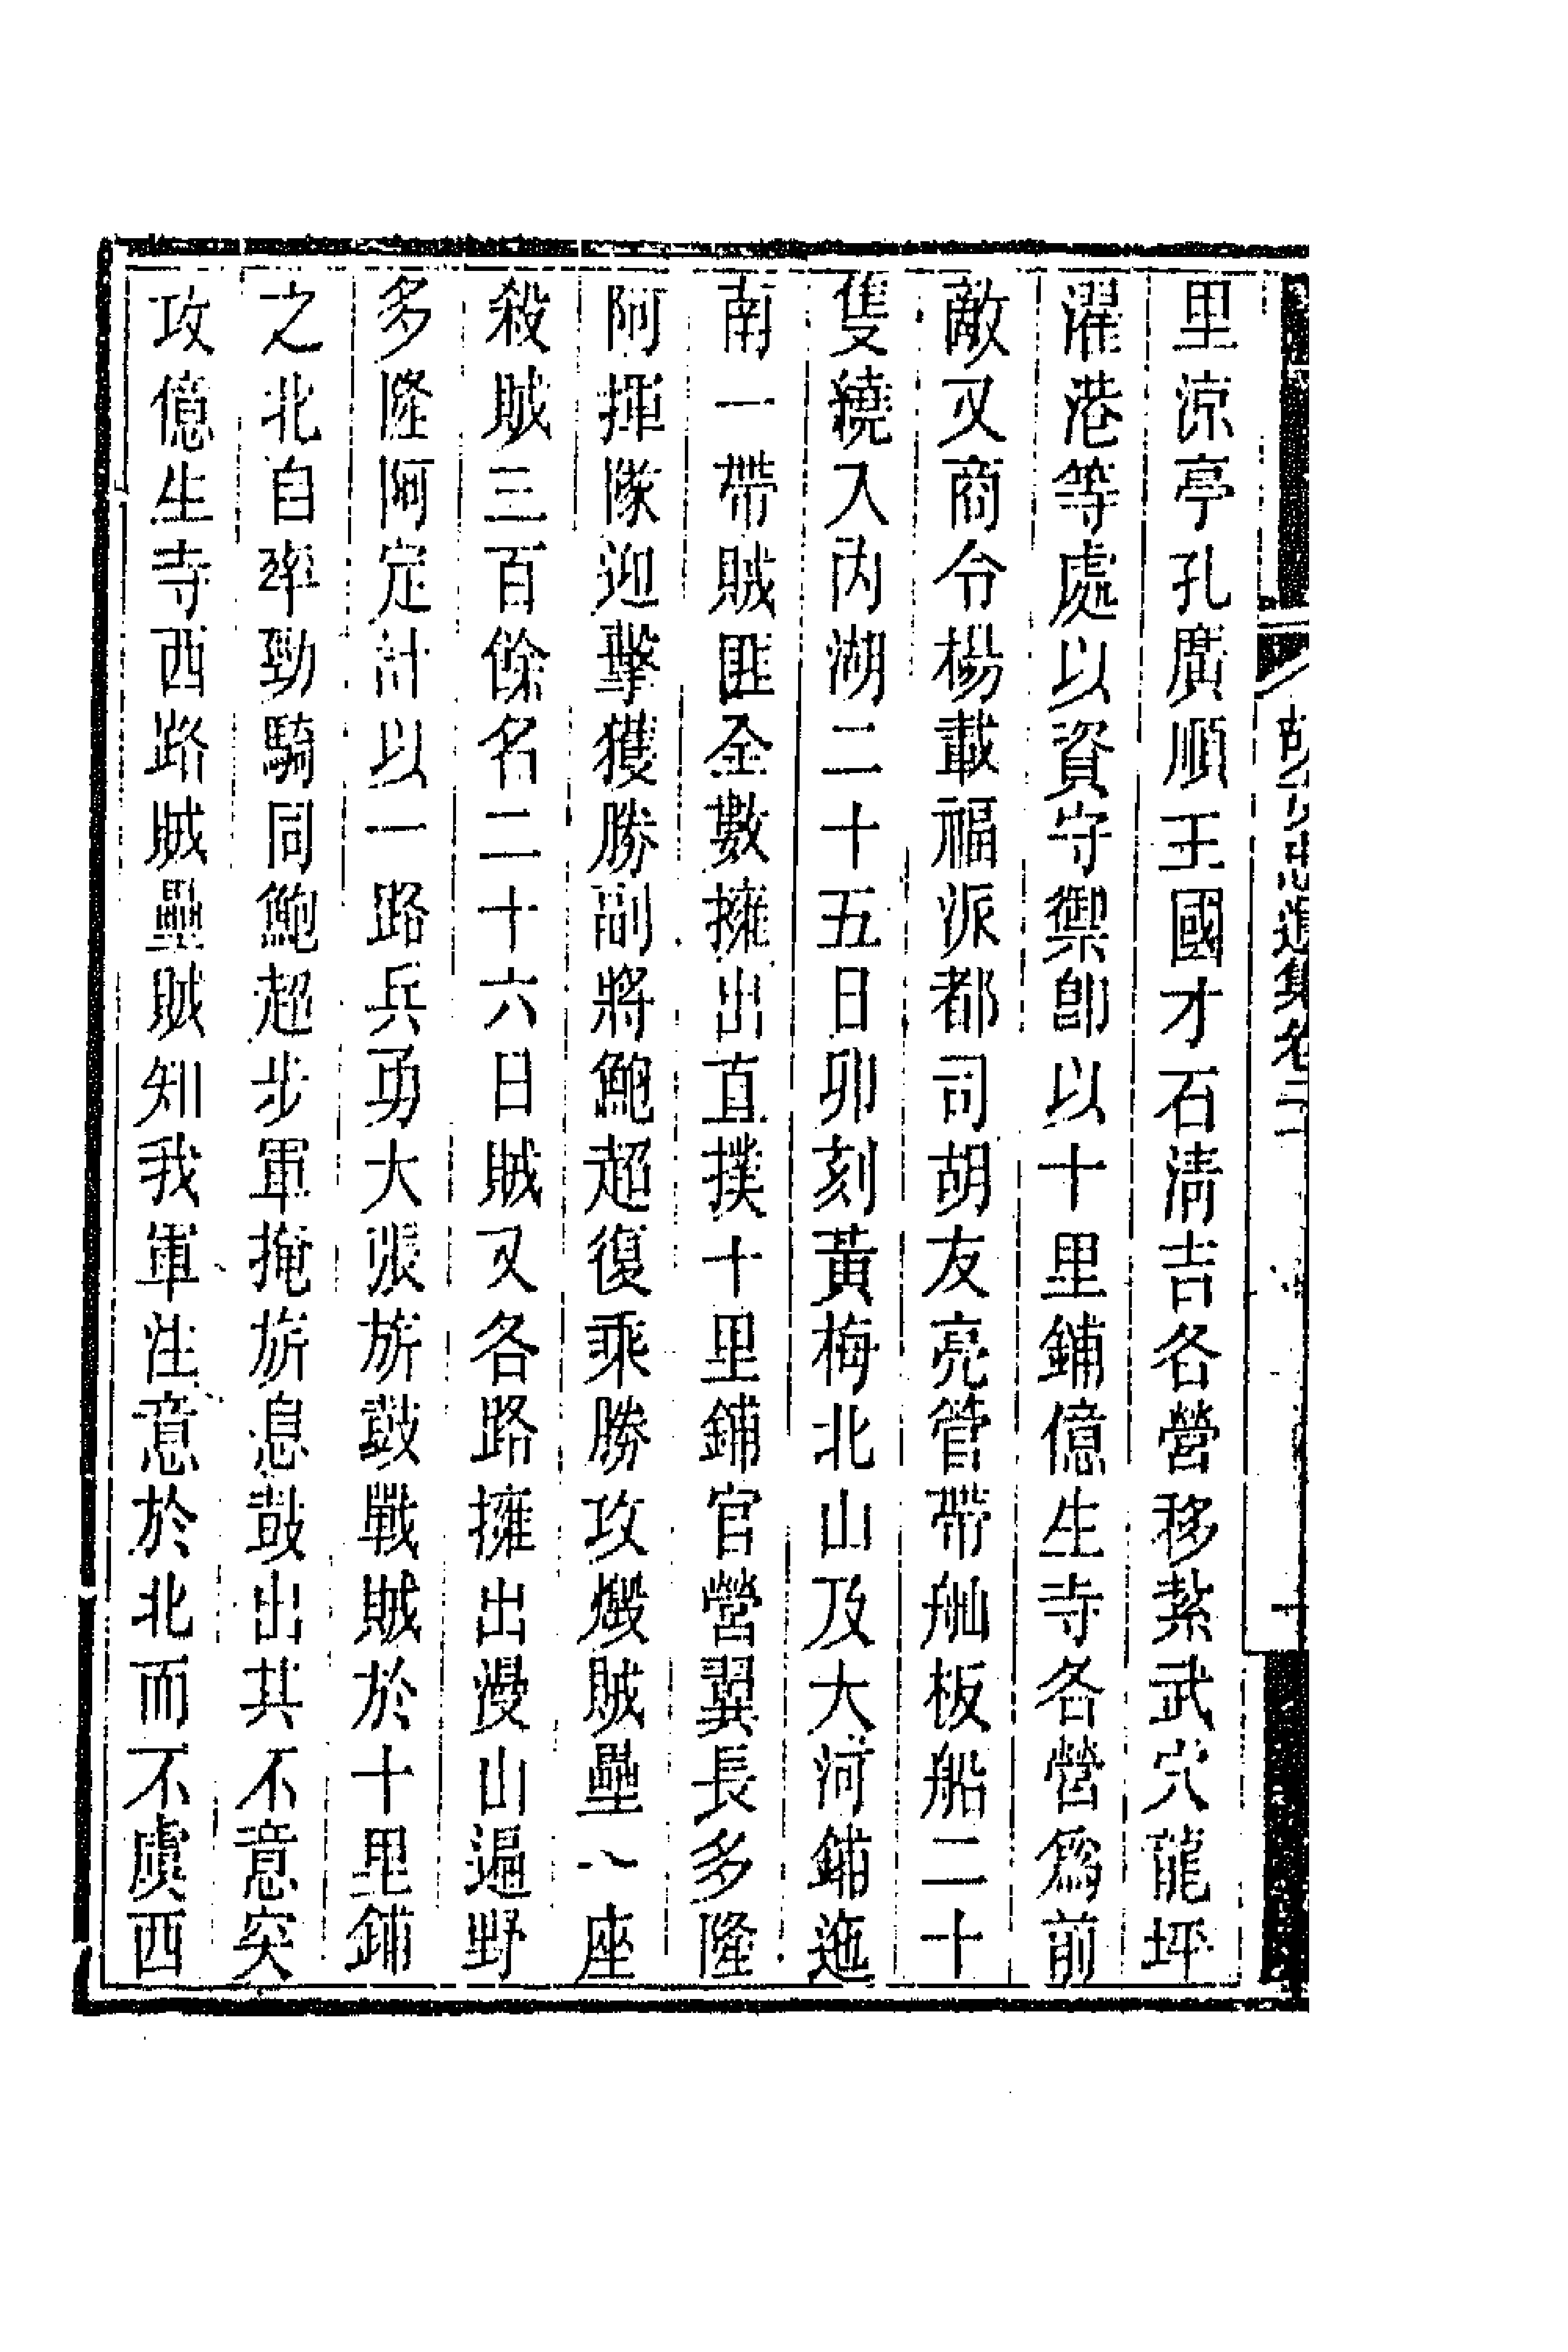 里涼亭孔廣順王國才石清吉各營移紮武穴龍坪
濯港等處以資守禦卽以十里鋪億生寺各營爲前
敵又商令楊載福派都司胡友亮管帶舢板船二十
隻繞入內湖二十五日卯刻黃梅北山及大河鋪迤
南一帶賊匪全數擁出直撲十里鋪官營翼長多隆
阿揮隊迎擊獲勝副將鮑超復乘勝攻燬賊壘八座
殺賊三百餘名二十六日賊又各路擁出漫山遍野
多隆阿定計以一路兵勇大張旂鼓戰賊於十里鋪
之北自率勁騎同鮑超步軍掩旂息鼓出其不意突
攻億生寺西路賊壘賊知我軍注意於北而不虞西